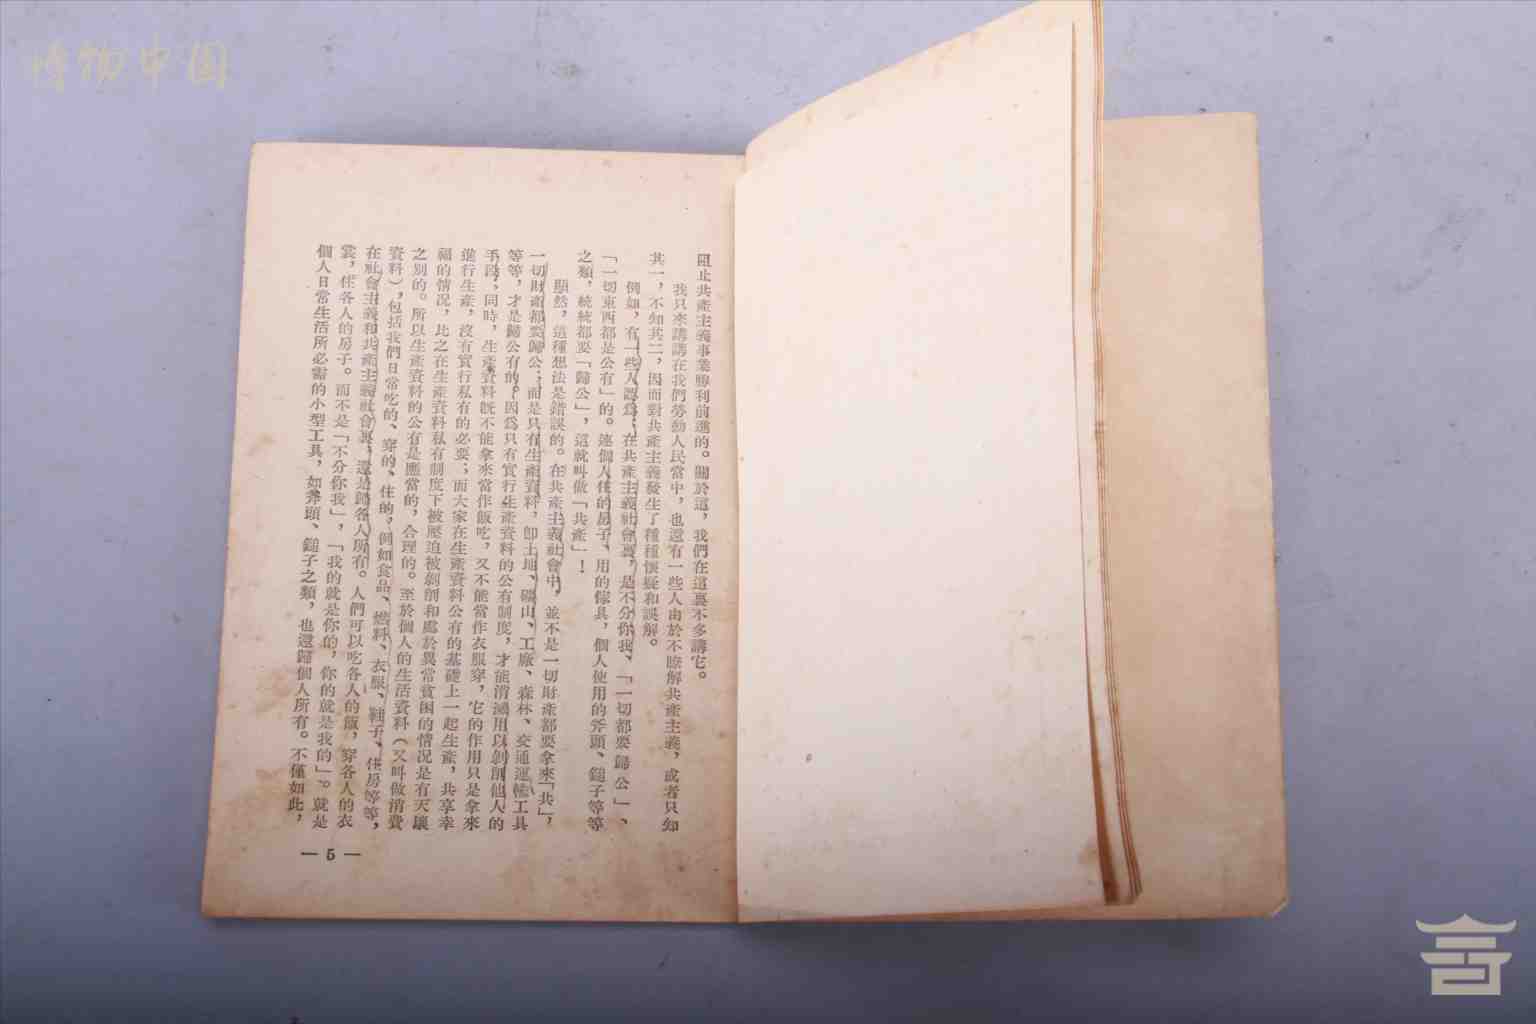 博物中国
阻止共產主義事業勝利前進的。關於這，我們在這裏不多講它。
我只來講講在我們勞動人民當中，也還有一些人由於不瞭解共產主義，或者只知
其一，不知其二，因而對共產主義發生了種種懷疑和誤解。
例如，有一些人認爲，在共產主義社會裏，是不分你我、「一切都要歸公」、
「一切東西都是公有」的。連個人住的房子、用的傢具，個人使用的斧頭、鎚子等等
之類，統統都要「歸公」，這就叫做「共產」！
顯然，這種想法是錯誤的。在共產主義社會中，並不是一切財產都要拿來「共」，
一切財產都要歸公；而是只有生產資料，卽土地、礦山、工廠、森林、交通運輸工具
等等，才是歸公有的。因爲只有實行生產資料的公有制度，才能消滅用以剝削他人的
手段；同時，生產資料旣不能拿來當作飯吃，又不能當作衣服穿，它的作用只是拿來
進行生產，沒有實行私有的必要；而大家在生產資料公有的基礎上一起生產，共享幸
福的情况，比之在生產資料私有制度下被壓迫被剝削和處於異常貧困的情况是有天壤
之別的。所以生產資料的公有是應當的，合理的。至於個人的生活資料（又叫做消費
資料），包括我們日常吃的、穿的、住的，例如食品、燃料、衣服、鞋子、住房等等，
在社會主義和共產主義社會裏，還是歸各人所有。人們可以吃各人的飯，穿各人的衣
裳，住各人的房子。而不是「不分你我」，「我的就是你的，你的就是我的」。就是
個人日常生活所必需的小型工具，如斧頭、鎚子之類，也還歸個人所有。不僅如此，
— 5 —